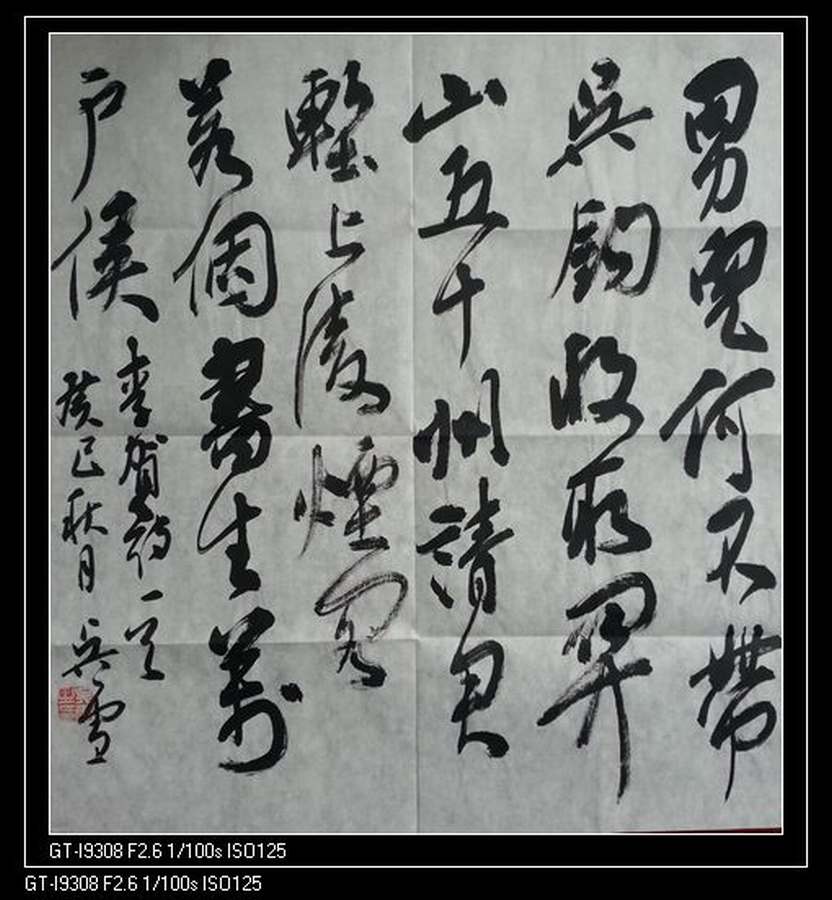 男兒何不帶
吳鈎收取關
山五十州請君
暫上凌煙閣
若個書生萬
户侯
李賀詩一首
癸巳秋月 吳雪
GT-I9308 F2.6 1/100s ISO125
GT-I9308 F2.6 1/100s ISO125